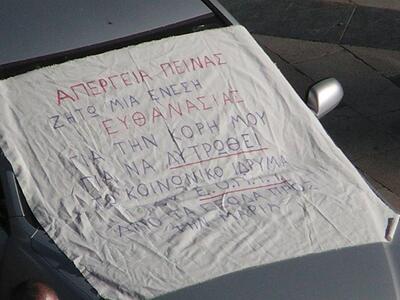 ΑΠΕΡΓΕΙΑ ΠΕΙΝΑΣ
ΖΗΤΩ ΜΙΑ ΕΝΕΣΗ
ΕΥΘΑΝΑΣΙΑΣ
ΓΙΑ ΤΗΝ ΚΟΡΗ ΜΟΥ
ΓΙΑ ΝΑ ΛΥΤΡΩΘΕΙ
ΤΟ ΚΟΙΝΩΝΙΚΟ ΙΔΡΥΜΑ
ΑΠΟ ΤΑ
ΤΗΝ ΜΑΡΙΑ